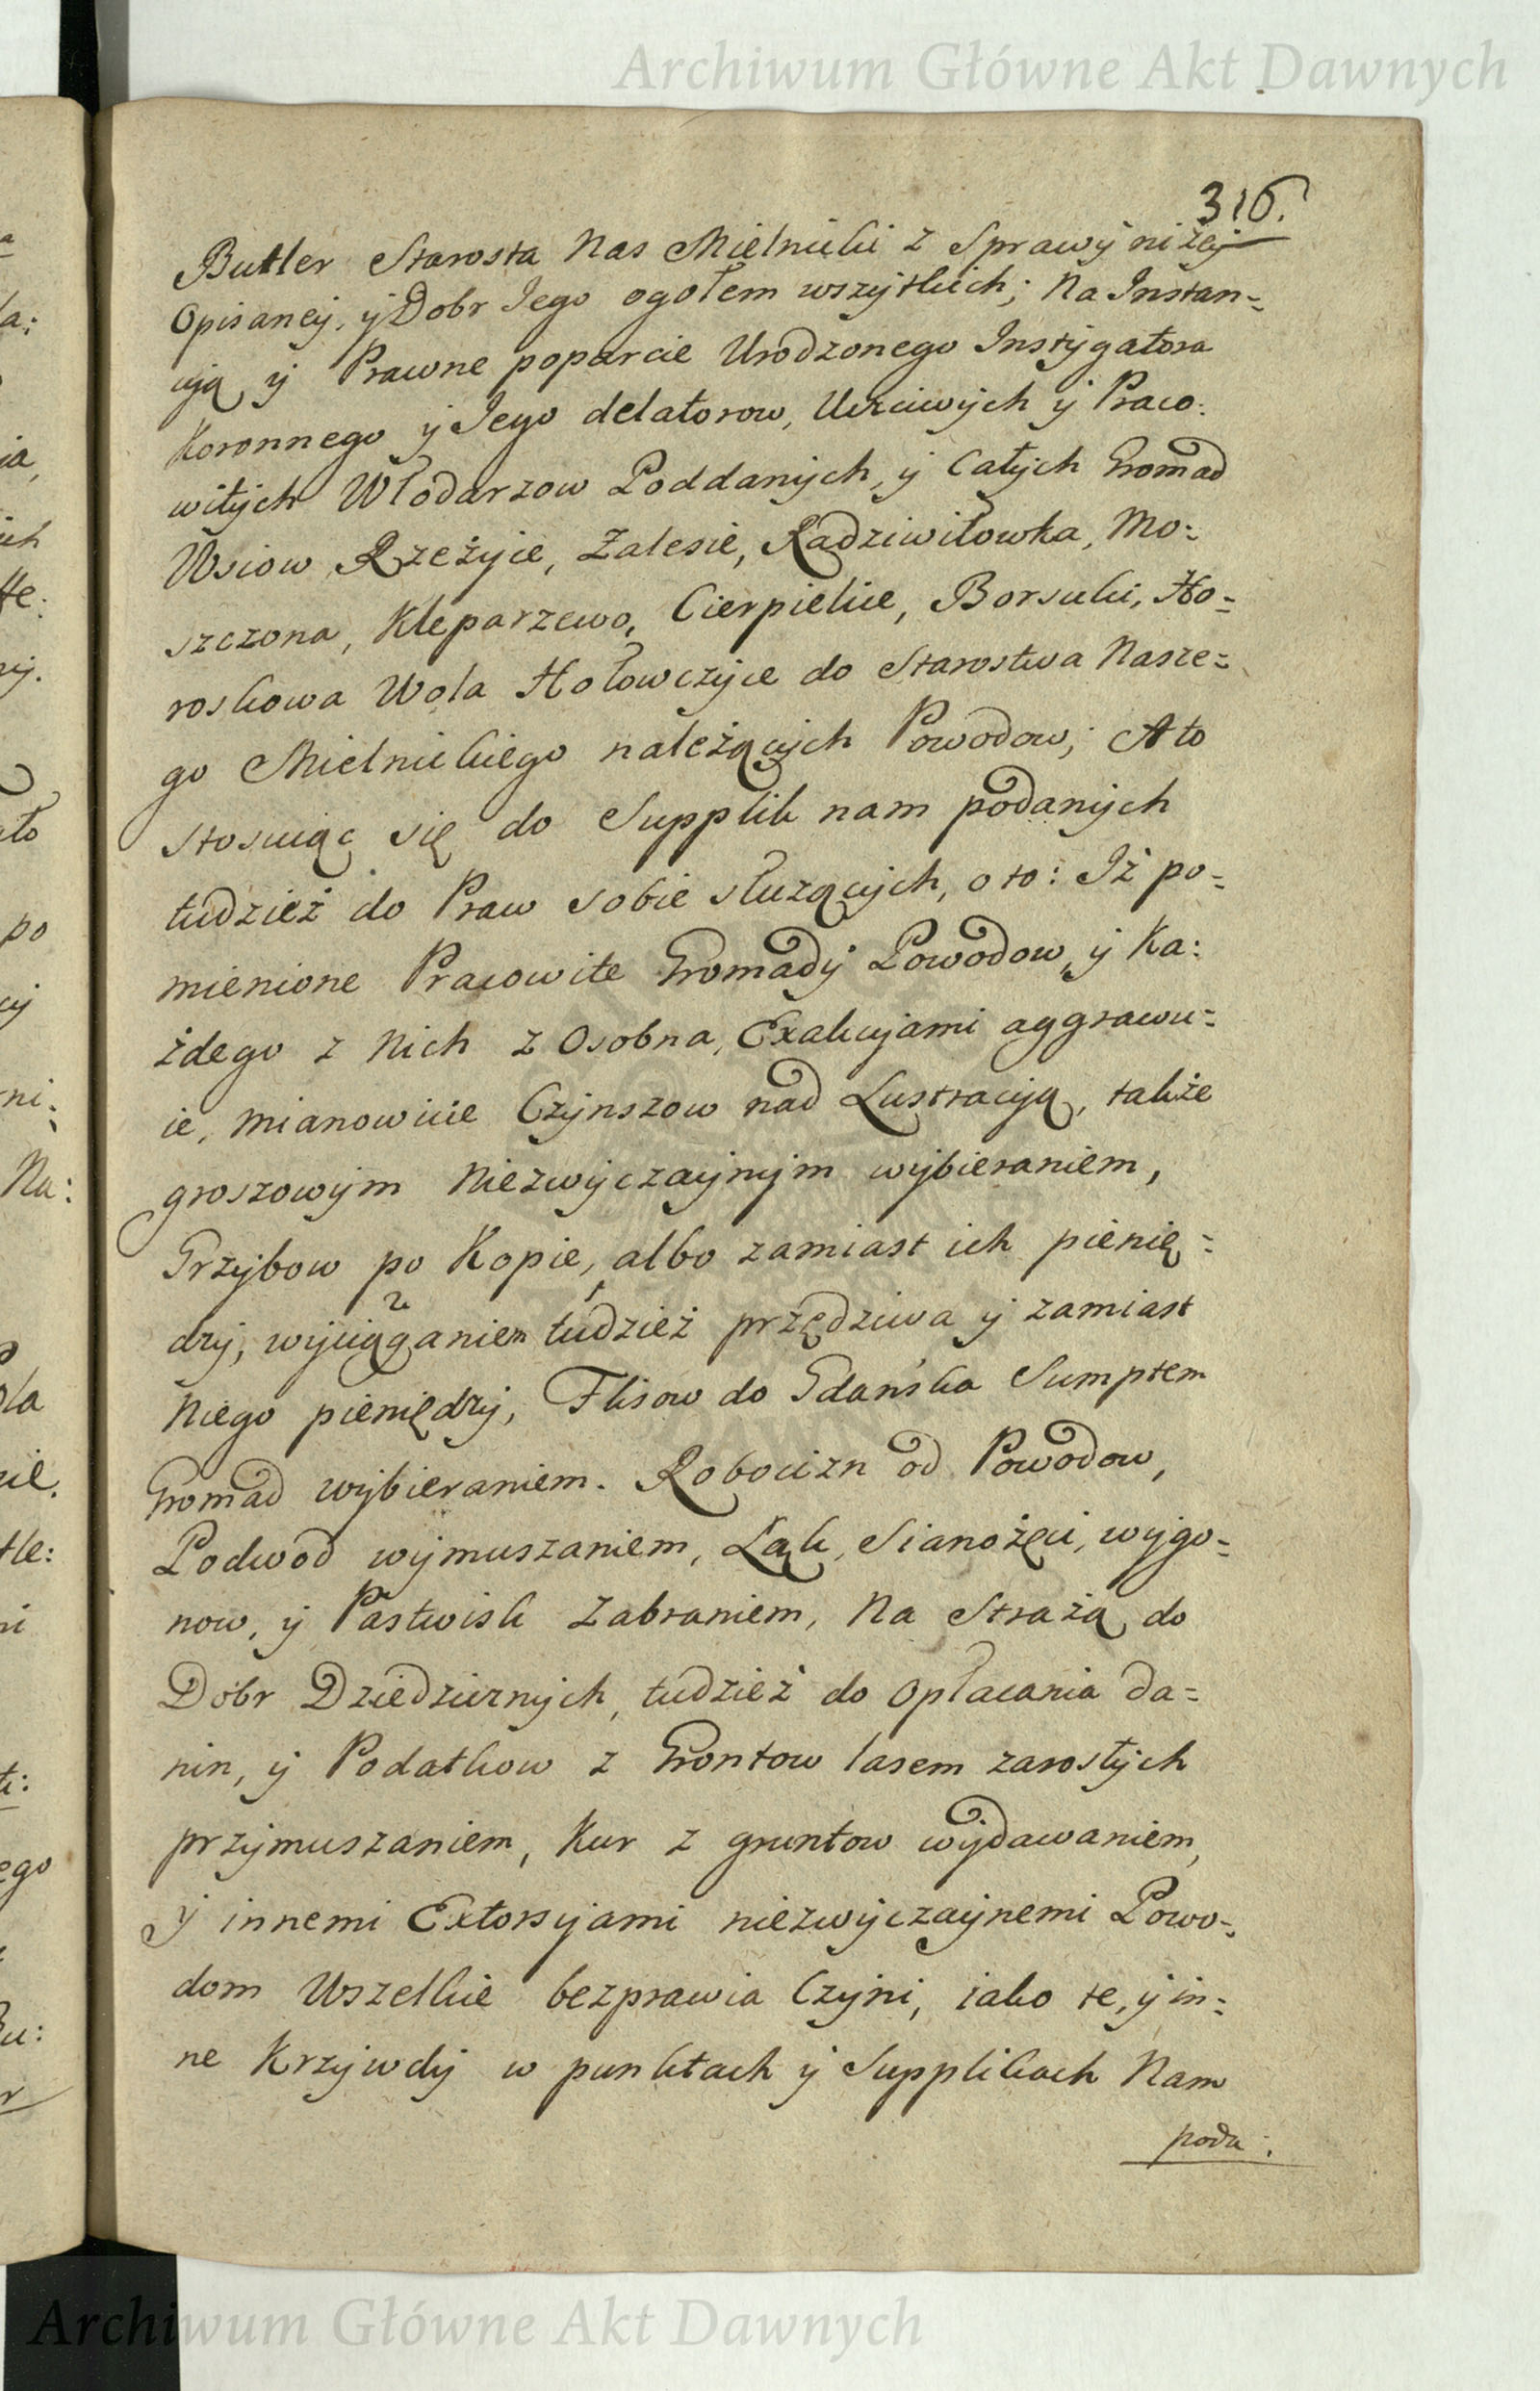 Archiwum Główne Akt Dawnych
316.
Butler Starosta Nas Mielnicki z Sprawy niżey
Opisaney, y Dobr Jego ogołem wszystkich; Na Instan=
cyą y Prawne poparcie Urodzonego Instygatora
Koronnego y Jego delatorow, Uczciwych y Praco:
witych Włodarzow Poddanych, y Całych Gromad
Wsiow Rzeżyce, Zalesie, Radziwiłowka, Mo:
szczona, Kleparzewo, Cierpielice, Borsuki, Ho=
roskowa Wola Hołowczyce do Starostwa Nasze=
go Mielnickiego należących Powodow; A to
stosuiąc się do Supplik nam podanych
tudzież do Praw sobie służących, o to: Iż po=
mienione Pracowite Gromady Powodow y Ka:
żdego z Nich z Osobna, Exakcyami aggrawu=
ie, mianowicie Czynszow nad Lustracyą, także
groszowym Niezwyczaynym wybieraniem,
Grzybow po Kopie, albo zamiast ich pienię=
dzy, wyciąganiem tudzież przędziwa y zamiast
Niego pieniędzy, Flisow do Gdańska Sumptem
Gromad wybieraniem. Robocizn od Powodow,
Podwod wymuszaniem, Łąk, Sianożęci, wygo=
now, y Pastwisk Zabraniem, Na Strażą do
Dobr Dziedzicznych, tudzież do opłacania da=
nin, y Podatkow z Grontow lasem zarostych
przymuszaniem, Kur z gruntow wydawaniem,
y innemi Extorsyjami niezwyczaynemi Powo=
dom Wszelkie bezprawia Czyni, iako te, y in=
ne Krzywdy w punktach y Supplikach Nam
poda:
Archiwum Główne Akt Dawnych